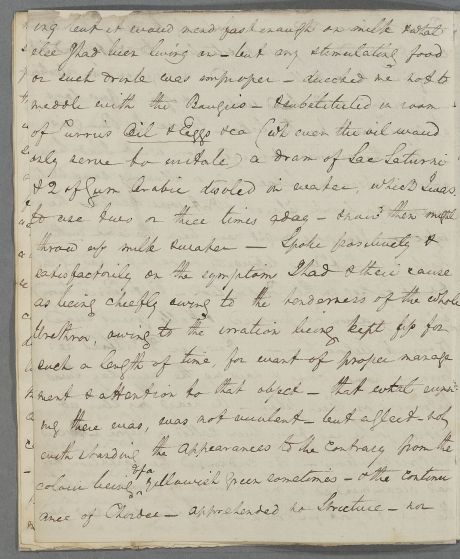 ing but it would mend fast enough on milk & what
else I had been living on – but any stimulating food
or such drink was improper – advised me not to
meddle with the Bougies – & substituted in room
of Currie's Oil & Eggs &ca (wh even the oil woud
only serve to irritate) a dram of Sac Saturni
& 2 of Gum Arabic disolved in water, which I was
to use two or three times aday – & now & then might
throw up milk & water – Spoke positively &
satisfactorily on the symptom I had & their cause
as being cheefly owing to the tenderness of the whole
Urethra, owing to the irration being kept up for
such a length of time, for want of proper manage
ment & attention to that object – that what runn-
ing there was, was not virulent – but a gleet – not
withstanding the appearances to the contrary from the
colour being of a yellowish green sometimes – & the continu
ance of Chordee – apprehended no Stricture – nor